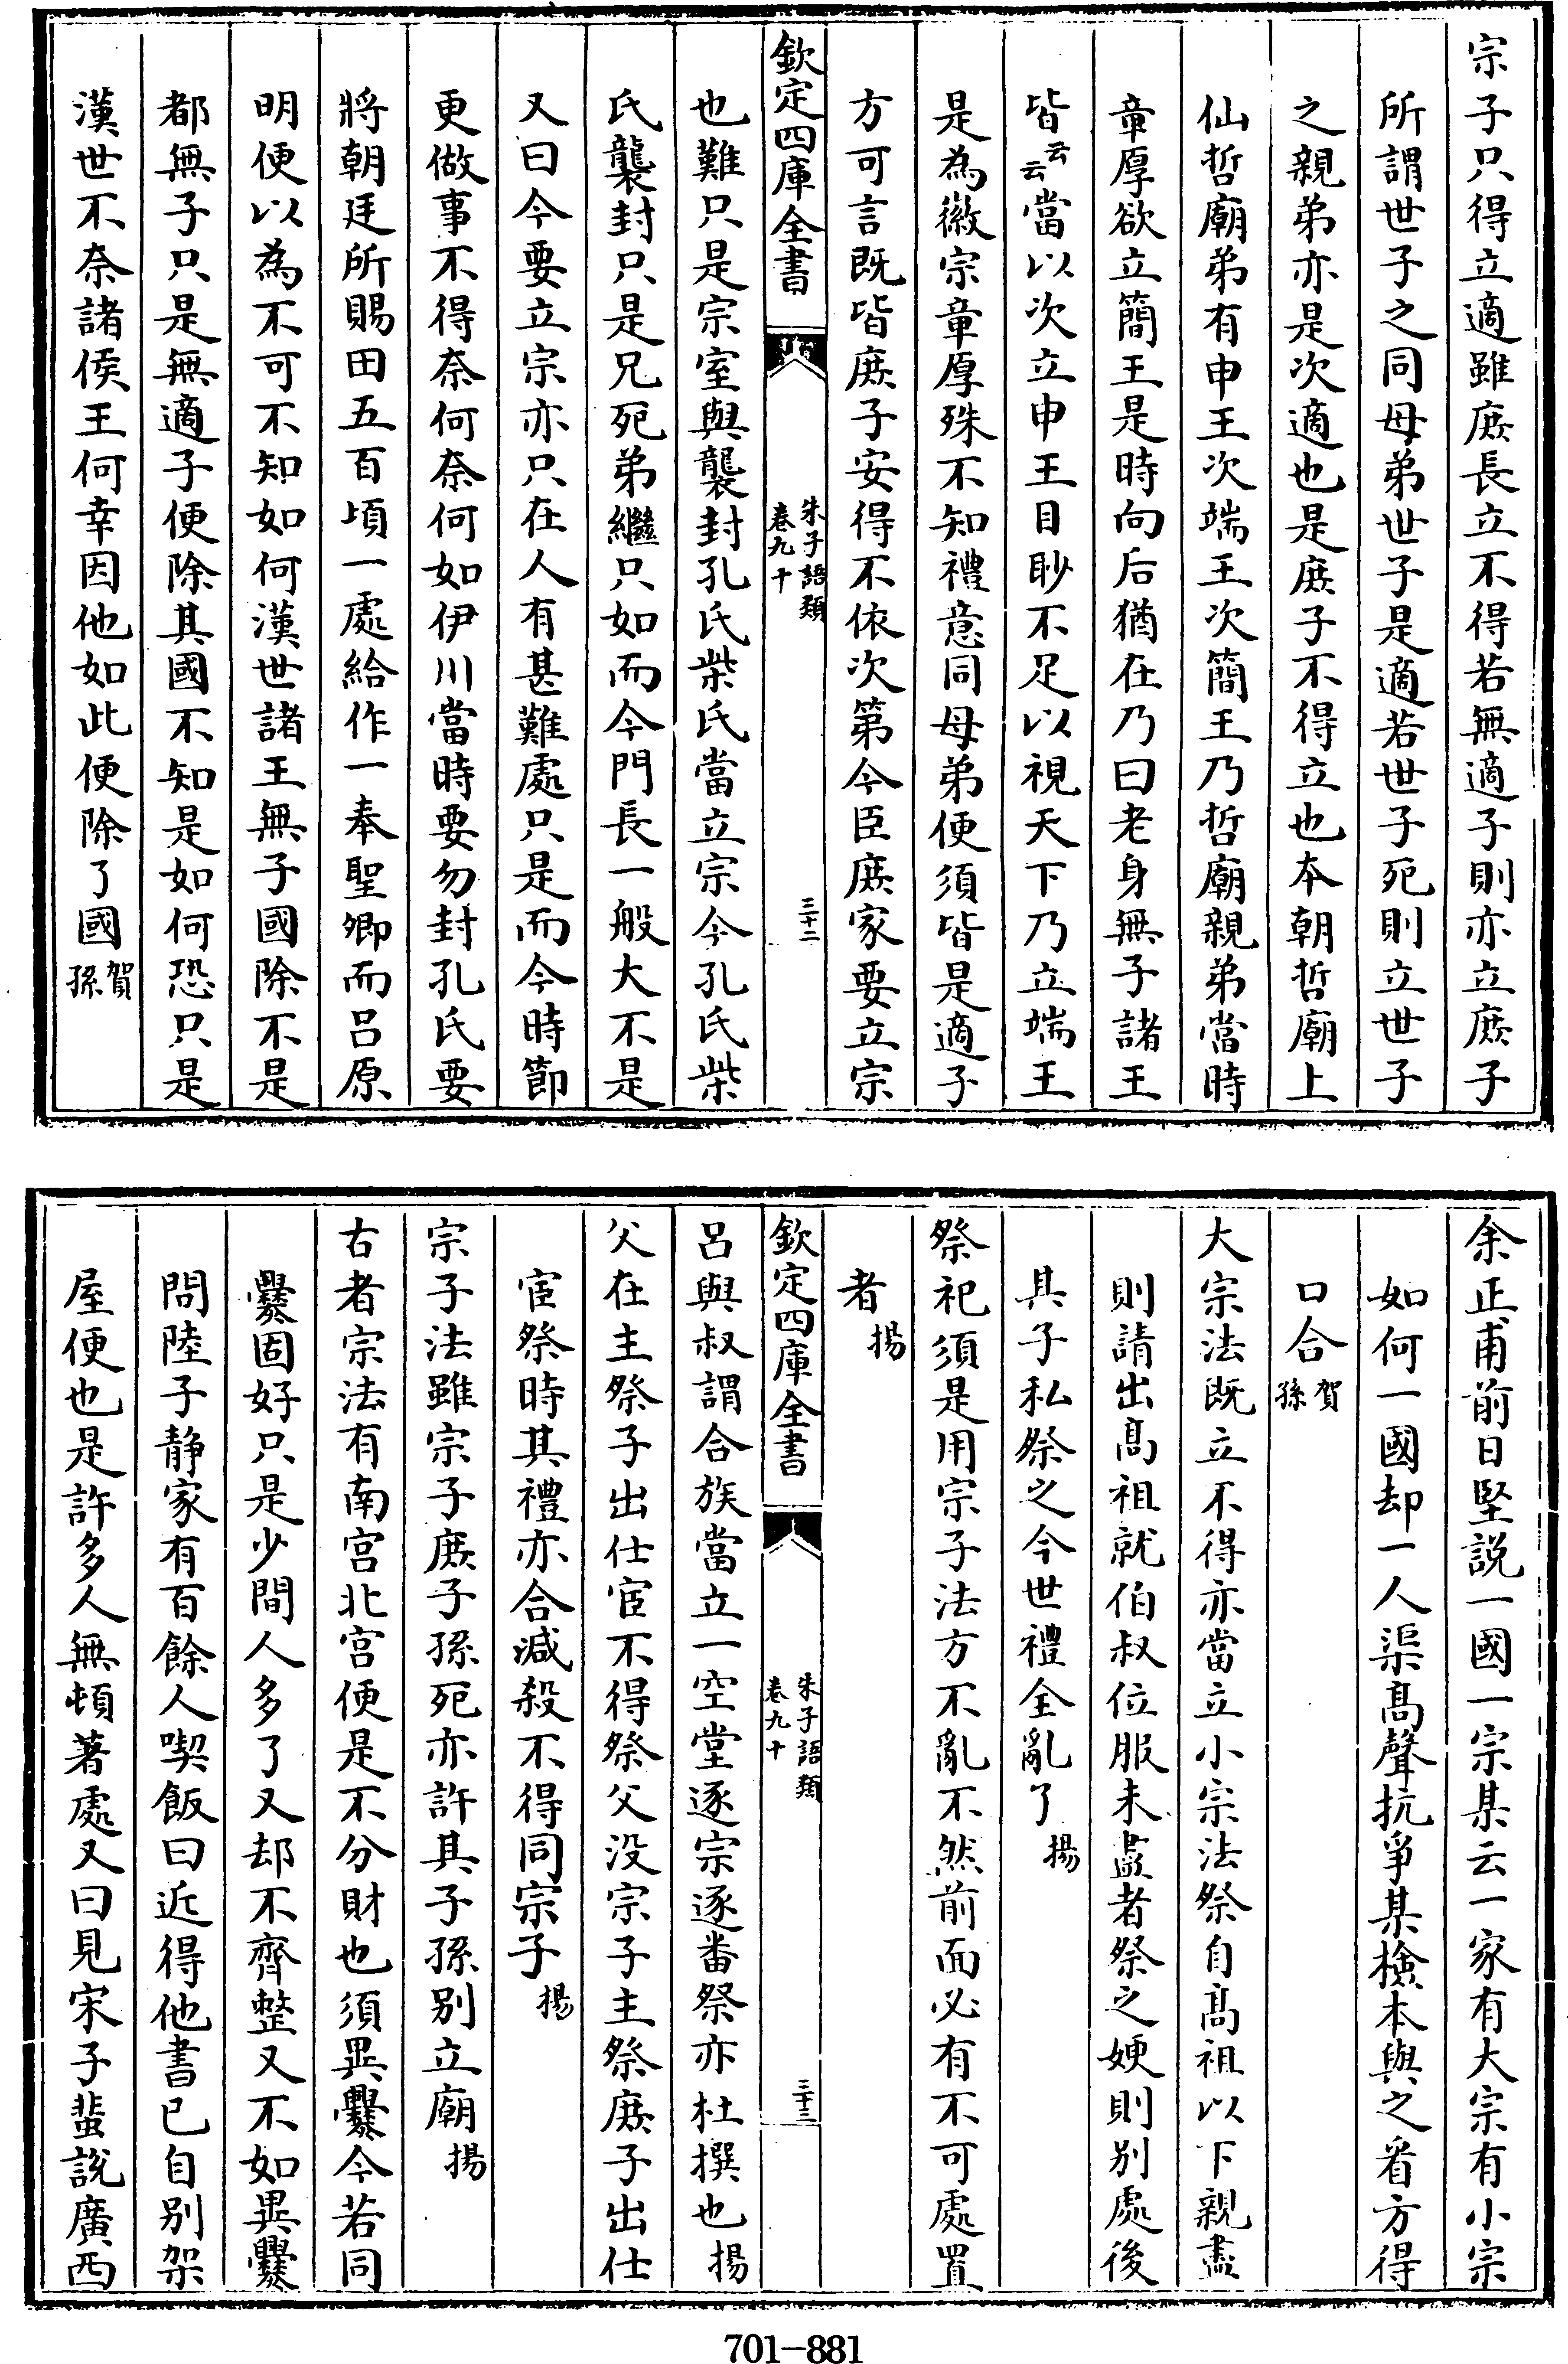 宗子只得立適雖庶長立不得若無適子則亦立庶子
所謂世子之同母弟世子是適若世子死則立世子
之親弟亦是次適也是庶子不得立也本朝哲廟上
仙哲廟弟有申王次端王次簡王乃哲廟親弟當時
章厚欲立簡王是時向后猶在乃曰老身無子諸王
皆云云當以次立申王目眇不足以視天下乃立端王
是為徽宗章厚殊不知禮意同母弟便須皆是適子
方可言既皆庶子安得不依次第今臣庶家要立宗
欽定四庫全書 朱子語類 卷九十 三十二
也難只是宗室與襲封孔氏柴氏當立宗今孔氏柴
氏襲封只是兄死弟繼只如而今門長一般大不是
又曰今要立宗亦只在人有甚難處只是而今時節
更做事不得奈何奈何如伊川當時要勿封孔氏要
將朝廷所賜田五百頃一處給作一奉聖卿而呂原
明便以為不可不知如何漢世諸王無子國除不是
都無子只是無適子便除其國不知是如何恐只是
漢世不奈諸侯王何幸因他如此便除了國賀孫
余正甫前日堅說一國一宗某云一家有大宗有小宗
如何一國却一人渠髙聲抗爭某檢本與之㸔方得
口合賀孫
大宗法既立不得亦當立小宗法祭自髙祖以下親盡
則請出髙祖就伯叔位服未盡者祭之嫂則别處後
其子私祭之今世禮全亂了揚
祭祀須是用宗子法方不亂不然前面必有不可處置
者揚
欽定四庫全書 朱子語類 卷九十 三十三
呂與叔謂合族當立一空堂逐宗逐畨祭亦杜撰也揚
父在主祭子出仕宦不得祭父没宗子主祭庶子出仕
宦祭時其禮亦合減殺不得同宗子揚
宗子法雖宗子庶子孫死亦許其子孫别立廟揚
古者宗法有南宫北宫便是不分財也須異爨今若同
爨固好只是少間人多了又却不齊整又不如異爨
問陸子静家有百餘人喫飯曰近得他書已自别架
屋便也是許多人無頓著處又曰見宋子蜚說廣西
701-881